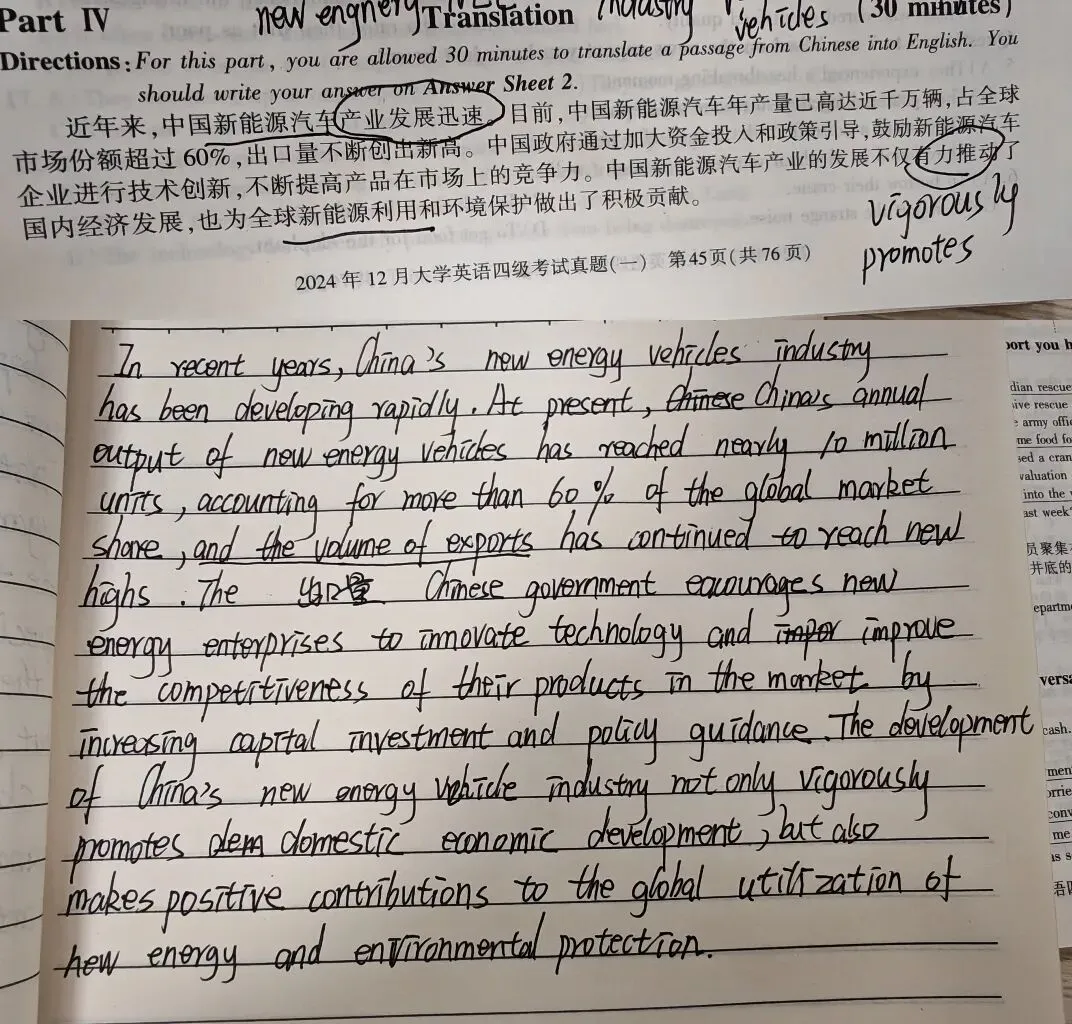 new engnery industry
Part IV Translation vehicles (30 minutes)
Directions: For this part, you are allowed 30 minutes to translate a passage from Chinese into English. You
should write your answer on Answer Sheet 2.
近年来，中国新能源汽车产业发展迅速。目前，中国新能源汽车年产量已高达近千万辆，占全球
市场份额超过 60%，出口量不断创出新高。中国政府通过加大资金投入和政策引导，鼓励新能源汽车
企业进行技术创新，不断提高产品在市场上的竞争力。中国新能源汽车产业的发展不仅有力推动了
国内经济发展，也为全球新能源利用和环境保护做出了积极贡献。
vigorously
promotes
2024 年 12 月大学英语四级考试真题(一) 第45页(共 76 页)
In recent years, China's new energy vehicles industry
has been developing rapidly. At present, Chinese China's annual
output of new energy vehicles has reached nearly 10 million
units, accounting for more than 60% of the global market
share, and the volume of exports has continued to reach new
highs. The 出口量 Chinese government ecourages new
energy enterprises to innovate technology and impor improve
the competitiveness of their products in the market by
increasing capital investment and policy guidance. The development
of China's new energy vehicle industry not only vigorously
promotes dem domestic economic development, but also
makes positive contributions to the global utilization of
new energy and environmental protection.
port you h
dian rescue
ive rescue
army offi
me food fo
sed a cran
valuation
into the
ast week
员聚集
井底的
epartme
versa
cash.
men
orrie
conv
me
as s